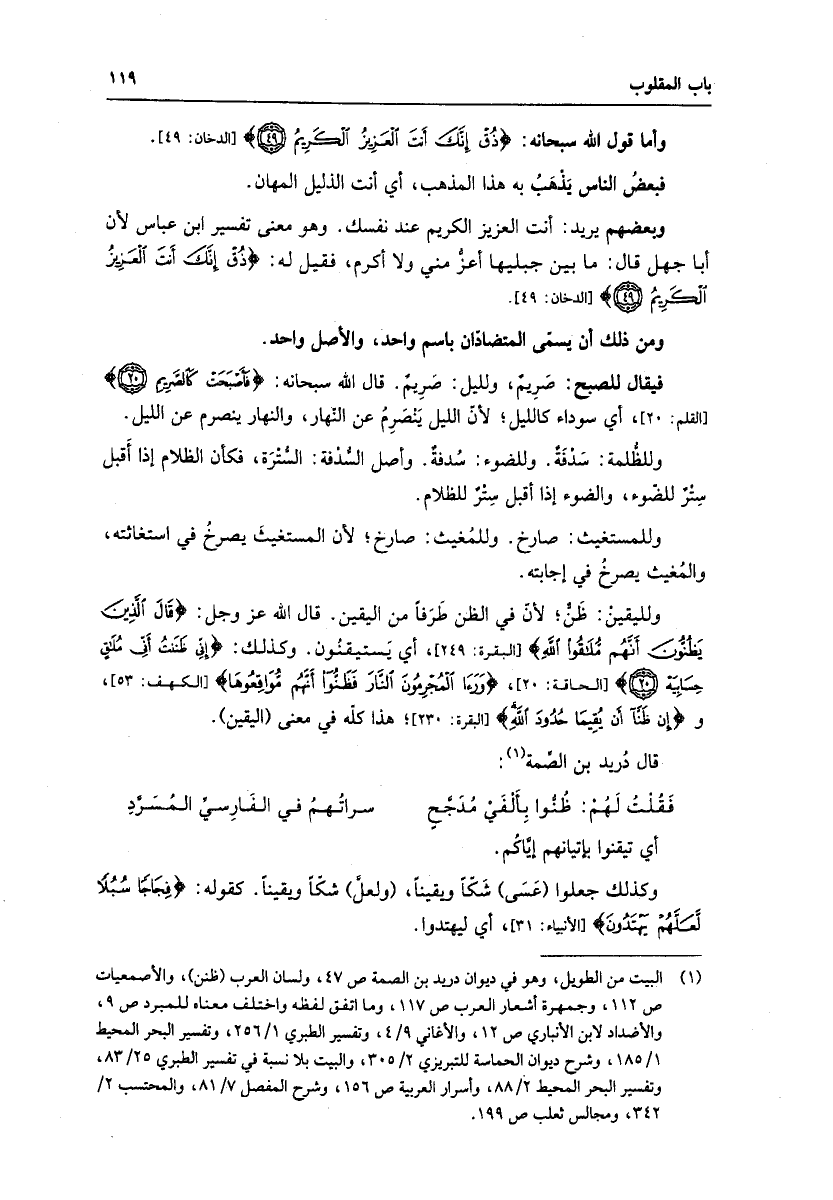 باب المقلوب ١١٩
وأما قول الله سبحانه: ﴿ذُقْ إِنَّكَ أَنتَ ٱلْعَزِيزُ ٱلْكَرِيمُ ۝٤٩﴾ [الدخان: ٤٩].
فبعضُ الناس يَذْهَبُ به هذا المذهب، أي أنت الذليل المهان.
وبعضهم يريد: أنت العزيز الكريم عند نفسك. وهو معنى تفسير ابن عباس لأن
أبا جهل قال: ما بين جبليها أعزُّ مني ولا أكرم، فقيل له: ﴿ذُقْ إِنَّكَ أَنتَ ٱلْعَزِيزُ
ٱلْكَرِيمُ ۝٤٩﴾ [الدخان: ٤٩].
ومن ذلك أن يسمّى المتضادّان باسم واحد، والأصل واحد.
فيقال للصبح: صَرِيمٌ، ولليل: صَرِيمٌ. قال الله سبحانه: ﴿فَأَصْبَحَتْ كَٱلصَّرِيمِ ۝٢٠﴾
[القلم: ٢٠]، أي سوداء كالليل؛ لأنّ الليل يَنْصَرِمُ عن النّهار، والنهار ينصرم عن الليل.
وللظُّلمة: سَدْفَةٌ. وللضوء: سُدفةٌ. وأصل السُّدْفة: السُّتْرَة، فكأن الظلام إذا أَقبل
سِتْرٌ للضّوء، والضوء إذا أقبل سِتْرٌ للظلام.
وللمستغيث: صارخ. وللمُغيث: صارخ؛ لأن المستغيثَ يصرخُ في استغاثته،
والمُغيث يصرخُ في إجابته.
ولليقينْ: ظَنٌّ؛ لأنّ في الظن طَرَفاً من اليقين. قال الله عز وجل: ﴿قَالَ ٱلَّذِينَ
يَظُنُّونَ أَنَّهُم مُّلَٰقُوا۟ ٱللَّهِ﴾ [البقرة: ٢٤٩]، أي يَستيقنُون. وكذلك: ﴿إِنِّى ظَنَنتُ أَنِّى مُلَٰقٍ
حِسَابِيَهْ ۝٢٠﴾ [الحاقة: ٢٠]، ﴿وَرَءَا ٱلْمُجْرِمُونَ ٱلنَّارَ فَظَنُّوٓا۟ أَنَّهُم مُّوَاقِعُوهَا﴾ [الكهف: ٥٣]،
و ﴿إِن ظَنَّآ أَن يُقِيمَا حُدُودَ ٱللَّهِ﴾ [البقرة: ٢٣٠]؛ هذا كلّه في معنى (اليقين).
قال دُريد بن الصِّمة(١):
فَقُلْتُ لَهُمْ: ظُنُّوا بِأَلْفَيْ مُدَجَّجٍ سراتُهمُ في الفَارِسيِّ المُسَرَّدِ
أي تيقنوا بإتيانهم إيَّاكُم.
وكذلك جعلوا (عَسَى) شَكّاً ويقيناً، (ولعلَّ) شكّاً ويقيناً. كقوله: ﴿فِجَاجًا سُبُلًا
لَّعَلَّهُمْ يَهْتَدُونَ﴾ [الأنبياء: ٣١]، أي ليهتدوا.
(١) البيت من الطويل، وهو في ديوان دريد بن الصمة ص ٤٧، ولسان العرب (ظنن)، والأصمعيات
ص ١١٢، وجمهرة أشعار العرب ص ١١٧، وما اتفق لفظه واختلف معناه للمبرد ص ٩،
والأضداد لابن الأنباري ص ١٢، والأغاني ٤/٩، وتفسير الطبري ٢٥٦/١، وتفسير البحر المحيط
١٨٥/١، وشرح ديوان الحماسة للتبريزي ٣٠٥/٢، والبيت بلا نسبة في تفسير الطبري ٨٣/٢٥،
وتفسير البحر المحيط ٨٨/٢، وأسرار العربية ص ١٥٦، وشرح المفصل ٨١/٧، والمحتسب ٢/
٣٤٢، ومجالس ثعلب ص ١٩٩.